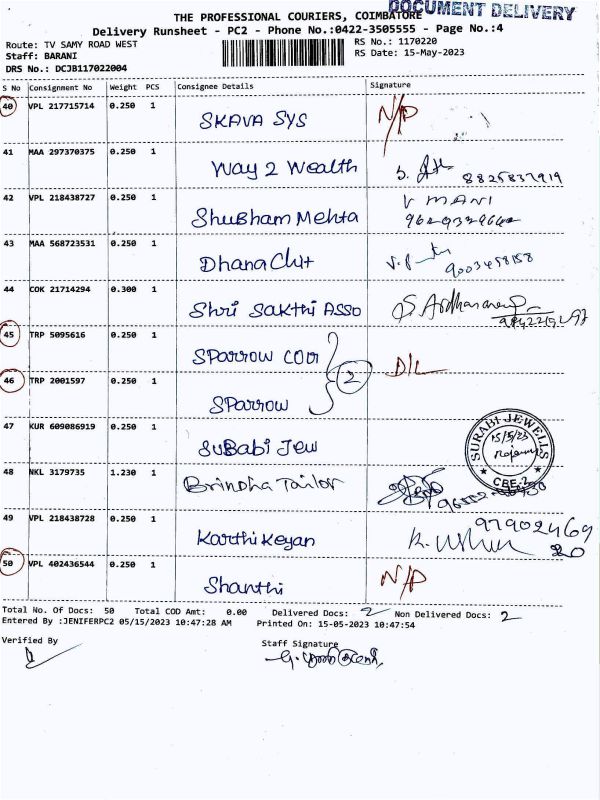 DOCUMENT DELIVERY
THE PROFESSIONAL COURIERS, COIMBATORE
Delivery Runsheet - PC2 - Phone No.:0422-3505555 - Page No.:4
Route: TV SAMY ROAD WEST RS No.: 1170220
Staff: BARANI RS Date: 15-May-2023
DRS No.: DCJB117022004
S No Consignment No Weight PCS Consignee Details Signature
40 VPL 217715714 0.250 1 SKAVA SYS N/P
41 MAA 297370375 0.250 1 Way 2 Wealth 8825837919
42 VPL 218438727 0.250 1 Shubham Mehta V MANI
43 MAA 568723531 0.250 1 Dhana Chit 9003458158
44 COK 21714294 0.300 1 Shri Sakthi Asso
45 TRP 5095616 0.250 1 Sparrow D/L
2
46 TRP 2001597 0.250 1 Sparrow
47 KUR 609086919 0.250 1 SuBabi Jew SURABI JEWELLS 15/5/23 CBE-2
48 NKL 3179735 1.230 1 Brindha Tailor
49 VPL 218438728 0.250 1 Karthikeyan 9790246920
50 VPL 402436544 0.250 1 Shanthi N/P
Total No. Of Docs: 50 Total COD Amt: 0.00 Delivered Docs: 2 Non Delivered Docs: 2
Entered By :JENIFERPC2 05/15/2023 10:47:28 AM Printed On: 15-05-2023 10:47:54
Verified By Staff Signature